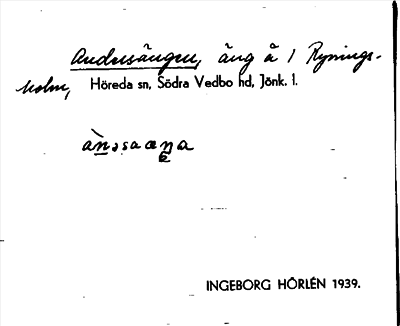 Andersängen, äng å 1 Rynings-
holm, Höreda sn, Södra Vedbo hd, Jönk. l.
INGEBORG HÖRLÉN 1939.